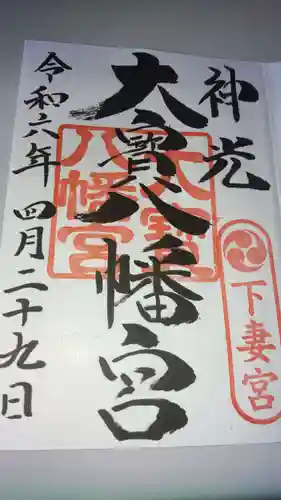 神光
大寳八幡宮
令和六年 四月二十九日
大寳
八幡宮
下妻宮